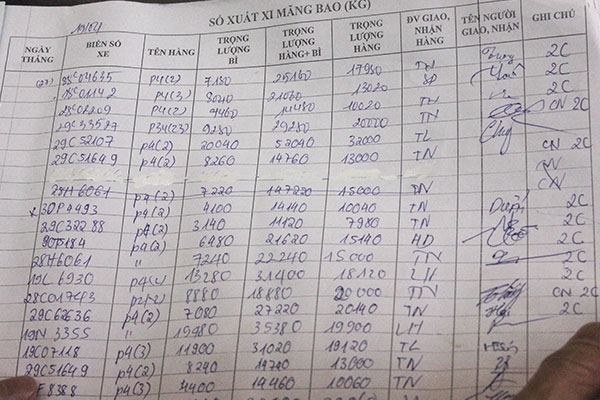 SỔ XUẤT XI MĂNG BAO (KG)
NGÀY THÁNG BIỂN SỐ XE TÊN HÀNG TRỌNG LƯỢNG BÌ TRỌNG LƯỢNG HÀNG+BÌ TRỌNG LƯỢNG HÀNG ĐV GIAO, NHẬN HÀNG TÊN NGƯỜI GIAO, NHẬN GHI CHÚ
(27) 28C04635 P4(2) 7180 25160 17980 TN 2C
28C01142 P4(3) 8040 21060 13020
28C02209 4460 14480 10020 TN CN 2C
29C33527 P34(23) 9280 29280 20000 TN
29C52107 P4(2) 20040 52040 32000 TL CN 2C
29C51649 P4(2) 8260 14760 13000 TN CN
28H6061 P4(2) 7220 15000 TN CN
30P4493 P4(2) 4100 14140 10040 TN 2C
29C32288 P4(2) 3140 11120 7980 TN 2C
P4(2) 6480 21620 15140 HD 2C
28H6061 " 7240 22240 15000 TN 2C
19L6930 P4(2) 13280 31400 18120 LH 2C
28C01743 8880 18880 TN CN 2C
29C62636 P4(2) 7080 27220 20140 TN 2C
19N3355 " 19980 35380 19900 LH
19C07118 P4(3) 11900 31020 19120 TL
29C51649 P4(2) 8240 13000 TN
8388 P4(3) 4400 14460 10060 TN